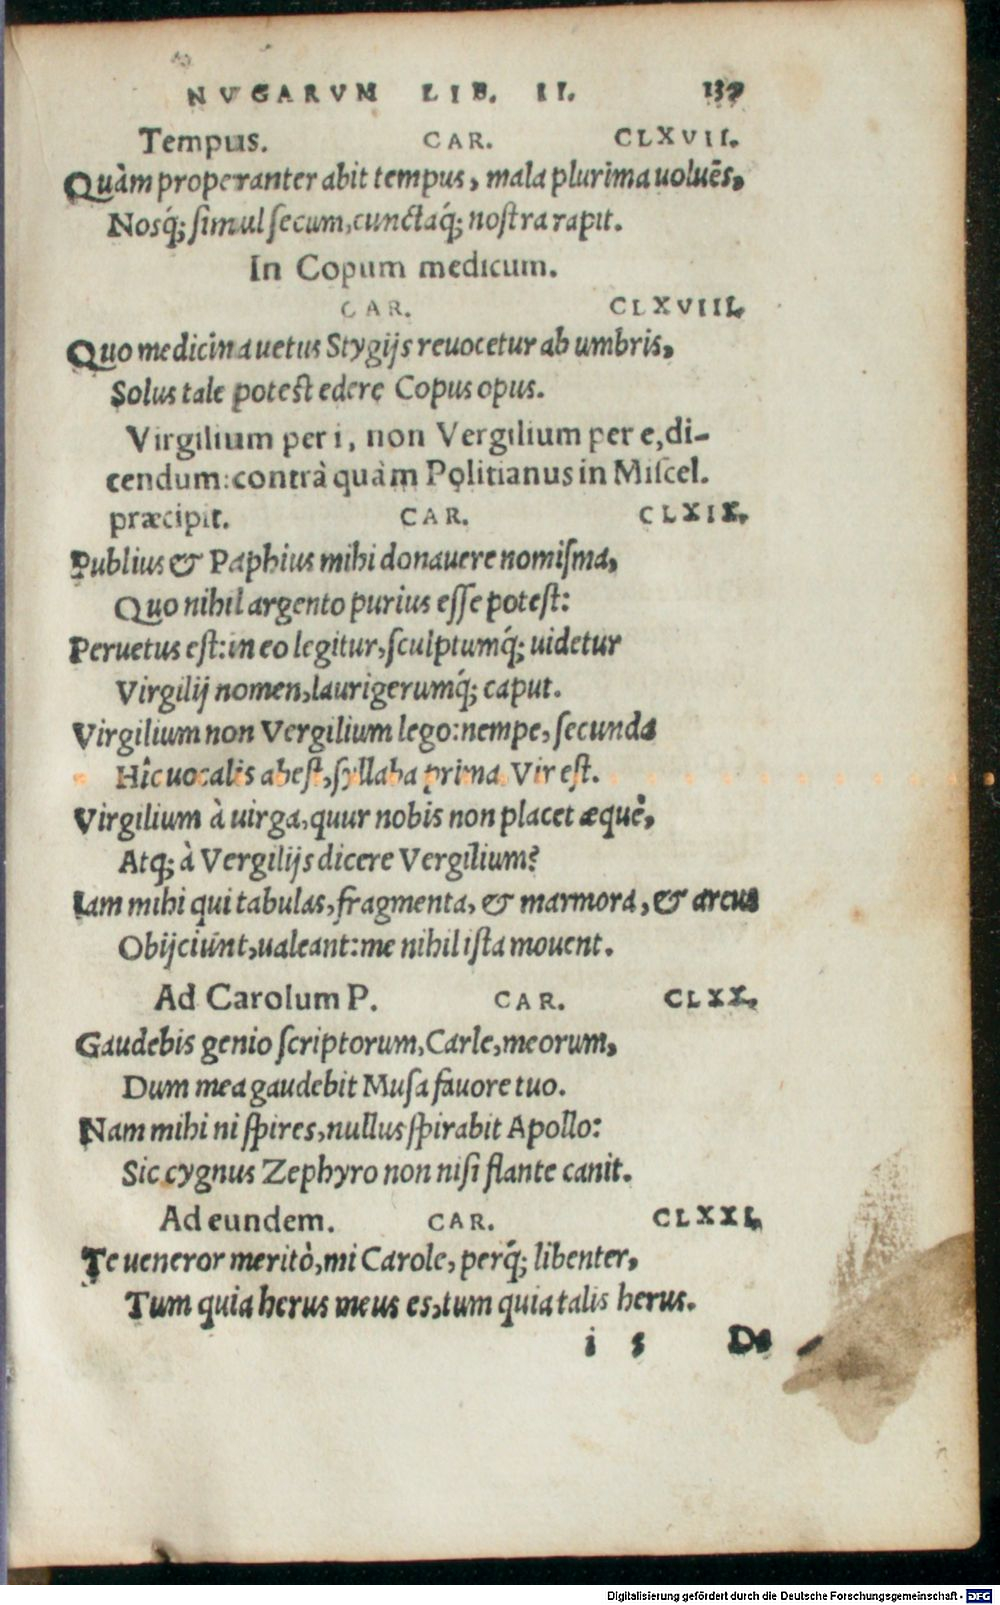 NVGARVM LIB. II. 137
Tempus. CAR. CLXVII.
Quàm properanter abit tempus, mala plurima uoluēs,
Nosq́; simul secum, cunctaq́; nostra rapit.
In Copum medicum.
CAR. CLXVIII.
Quo medicina uetus Stygijs reuocetur ab umbris,
Solus tale potest edere Copus opus.
Virgilium per i, non Vergilium per e, di-
cendum: contrà quàm Politianus in Miscel.
præcipit. CAR. CLXIX.
Publius & Paphius mihi donauere nomisma,
Quo nihil argento purius esse potest:
Peruetus est: in eo legitur, sculptumq́; uidetur
Virgilij nomen, laurigerumq́; caput.
Virgilium non Vergilium lego: nempe, secunda
Hîc uocalis abest, syllaba prima Vir est.
Virgilium à uirga, quur nobis non placet æquè,
Atq; à Vergilijs dicere Vergilium?
Iam mihi qui tabulas, fragmenta, & marmora, & arcus
Obijciunt, ualeant: me nihil ista mouent.
Ad Carolum P. CAR. CLXX.
Gaudebis genio scriptorum, Carle, meorum,
Dum mea gaudebit Musa fauore tuo.
Nam mihi ni spires, nullus spirabit Apollo:
Sic cygnus Zephyro non nisi flante canit.
Ad eundem. CAR. CLXXI.
Te ueneror meritò, mi Carole, perq́; libenter,
Tum quia herus meus es, tum quia talis herus.
i 5 De
Digitalisierung gefördert durch die Deutsche Forschungsgemeinschaft - DFG